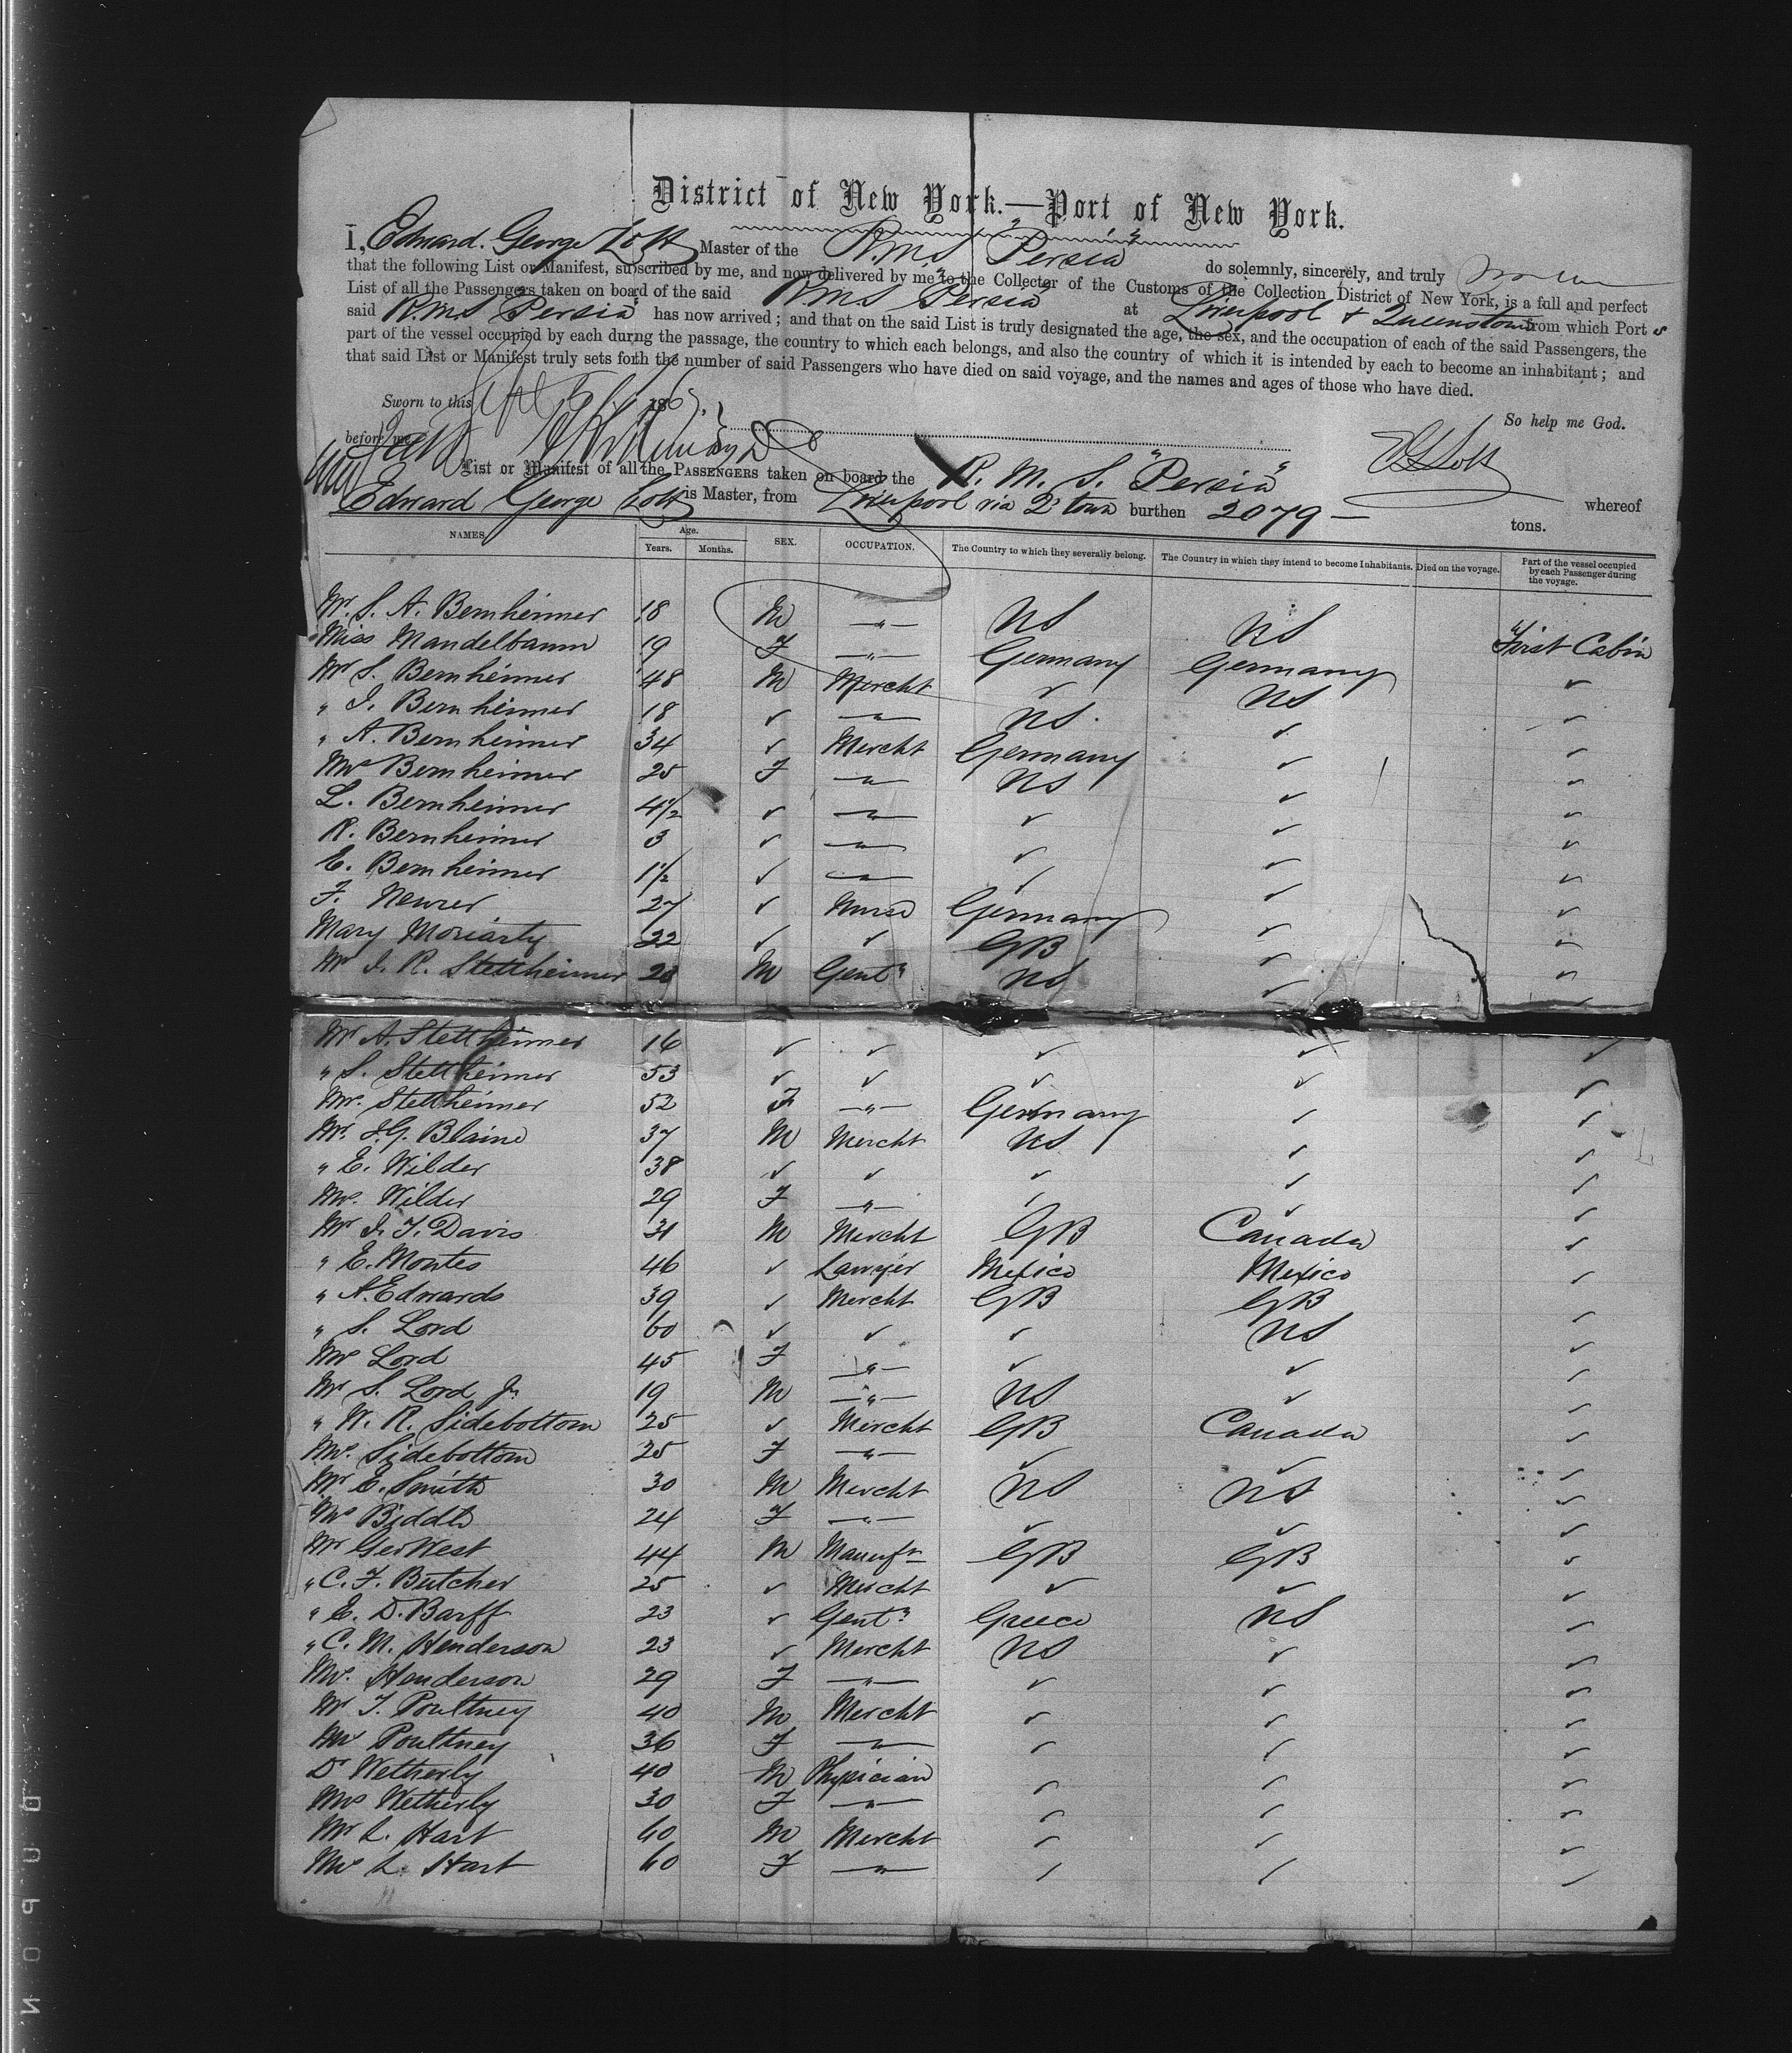 District of New York.—Port of New York.
I, Edward George Lott Master of the R.M.S "Persia" do solemnly, sincerely, and truly
that the following List or Manifest, subscribed by me, and now delivered by me to the Collector of the Customs of the Collection District of New York, is a full and perfect
List of all the Passengers taken on board of the said R.M.S "Persia" at Liverpool & Queenstown from which Port s
said R.M.S Persia has now arrived; and that on the said List is truly designated the age, the sex, and the occupation of each of the said Passengers, the
part of the vessel occupied by each during the passage, the country to which each belongs, and also the country of which it is intended by each to become an inhabitant; and
that said List or Manifest truly sets forth the number of said Passengers who have died on said voyage, and the names and ages of those who have died.
Sworn to this 186
So help me God.
before me
E G Lott
List or Manifest of all the PASSENGERS taken on board the R. M. S. "Persia" whereof
Edward George Lott is Master, from Liverpool via Q town burthen 2079 — tons.
NAMES. Age. Years. Months. SEX. OCCUPATION. The Country to which they severally belong. The Country in which they intend to become Inhabitants. Died on the voyage. Part of the vessel occupied by each Passenger during the voyage.
Mr. S. A. Bernheimer 18 M —"— US US First Cabin
Miss Mandelbaum 19 F —"— Germany Germany ✓
Mr S. Bernheimer 48 M Mercht ✓ US ✓
" I. Bernheimer 18 ✓ —"— US. ✓ ✓
" A. Bernheimer 34 ✓ Mercht Germany ✓ ✓
Mrs Bernheimer 25 F —"— US ✓ ✓
L. Bernheimer 4 1/2 ✓ —"— ✓ ✓ ✓
R. Bernheimer 3 ✓ —"— ✓ ✓ ✓
E. Bernheimer 1 1/2 ✓ —"— ✓ ✓ ✓
F. Neurer 27 ✓ Nurse Germany ✓ ✓
Mary Moriarty 22 ✓ ✓ GB ✓ ✓
Mr I. R. Stettheimer 28 M Gentn US ✓ ✓
Mr A. Stettheimer 16 ✓ ✓ ✓ ✓ ✓
" S. Stettheimer 53 ✓ ✓ ✓ ✓ ✓
Mrs. Stettheimer 52 F —"— Germany ✓ ✓
Mr. J. G. Blaine 37 M Mercht US ✓ ✓
" E. Wilder 38 ✓ ✓ ✓ ✓ ✓
Mrs. Wilder 29 F —"— ✓ ✓ ✓
Mr I. T. Davis 31 M Mercht GB Canada ✓
" E. Montes 46 ✓ Lawyer Mexico Mexico ✓
" A. Edwards 39 ✓ Mercht GB GB ✓
" S. Lord 60 ✓ ✓ ✓ US ✓
Mrs Lord 45 F —"— ✓ ✓ ✓
Mr S. Lord Jr 19 M —"— US ✓ ✓
" W. R. Sidebottom 25 ✓ Mercht GB Canada ✓
Mrs. Sidebottom 25 F —"— ✓ ✓ ✓
Mr E. Smith 30 M Mercht US US ✓
Mrs Biddle 24 F —"— ✓ ✓ ✓
Mr Geo West 44 M Manufr GB GB ✓
" C. F. Butcher 25 ✓ Mercht ✓ ✓ ✓
" E. D. Barff 23 ✓ Gentn Greece US ✓
" C. M. Henderson 23 ✓ Mercht US ✓ ✓
Mrs. Henderson 29 F —"— ✓ ✓ ✓
Mr T. Poultney 40 M Mercht ✓ ✓ ✓
Mrs Poultney 36 F —"— ✓ ✓ ✓
Dr Wetherly 40 M Physician ✓ ✓ ✓
Mrs Wetherly 30 F —"— ✓ ✓ ✓
Mr L. Hart 60 M Mercht ✓ ✓ ✓
Mrs L. Hart 60 F —"— ✓ ✓ ✓